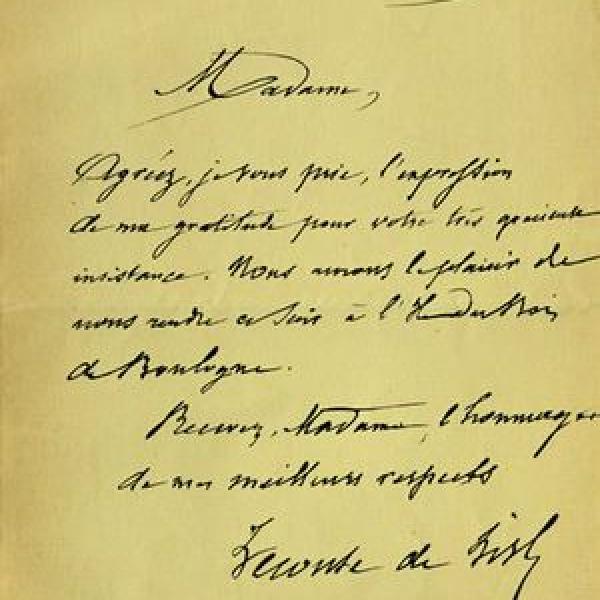 Madame,
Agréez, je vous prie, l'expression
de ma gratitude pour votre très gracieuse
insistance. Nous aurons le plaisir de
nous rendre ce soir à l' du Bois
de Boulogne.
Recevez, Madame, l'hommage
de mes meilleurs respects
Leconte de Lisle